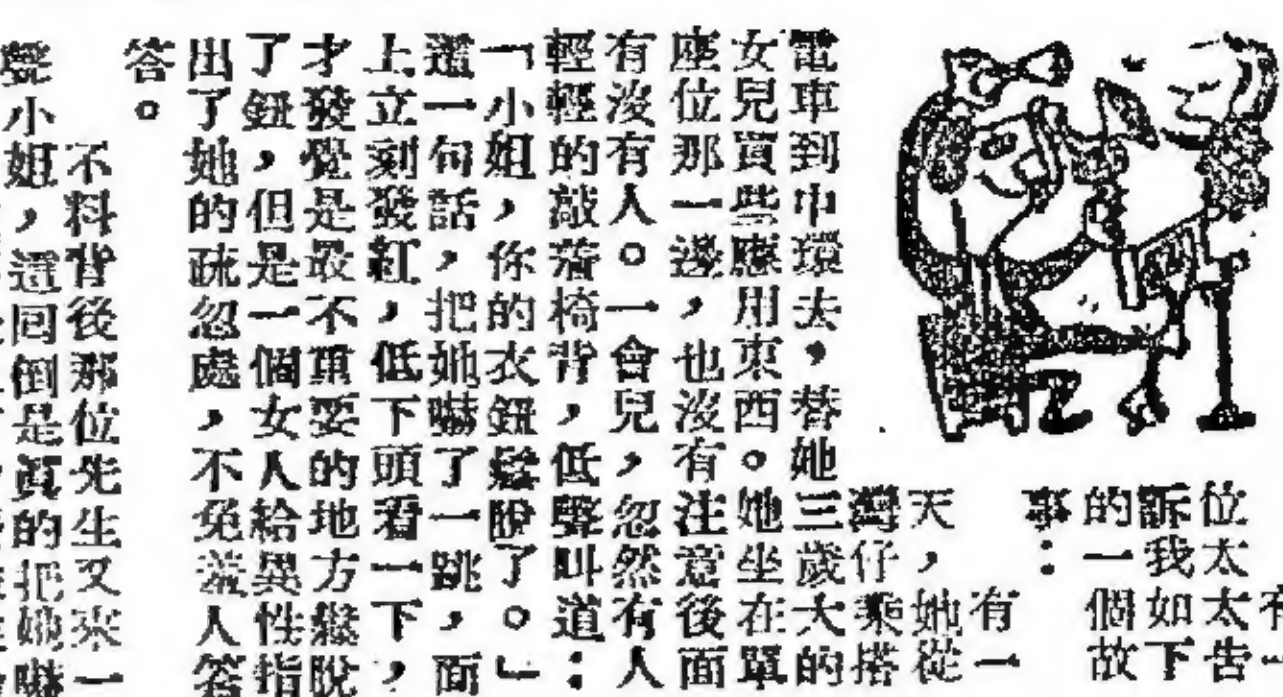 有一
位太太告
訴我如下
的一個故
事：
有一
天，她從
灣仔乘搭
電車到中環去，替她三歲大的
女兒買些應用東西。她坐在單
座位那一邊，也沒有注意後面
有沒有人。一會兒，忽然有人
輕輕的敲着椅背，低聲叫道：
「小姐，你的衣鈕鬆脫了。」
這一句話，把她嚇了一跳，面
上立刻發紅，低下頭看一下，
才發覺是最不重要的地方鬆脫
了鈕，但是一個女人給異性指
出了她的疏忽處，不免羞人答
答。
不料背後那位先生又來一
聲小姐，這回倒是眞的把她嚇